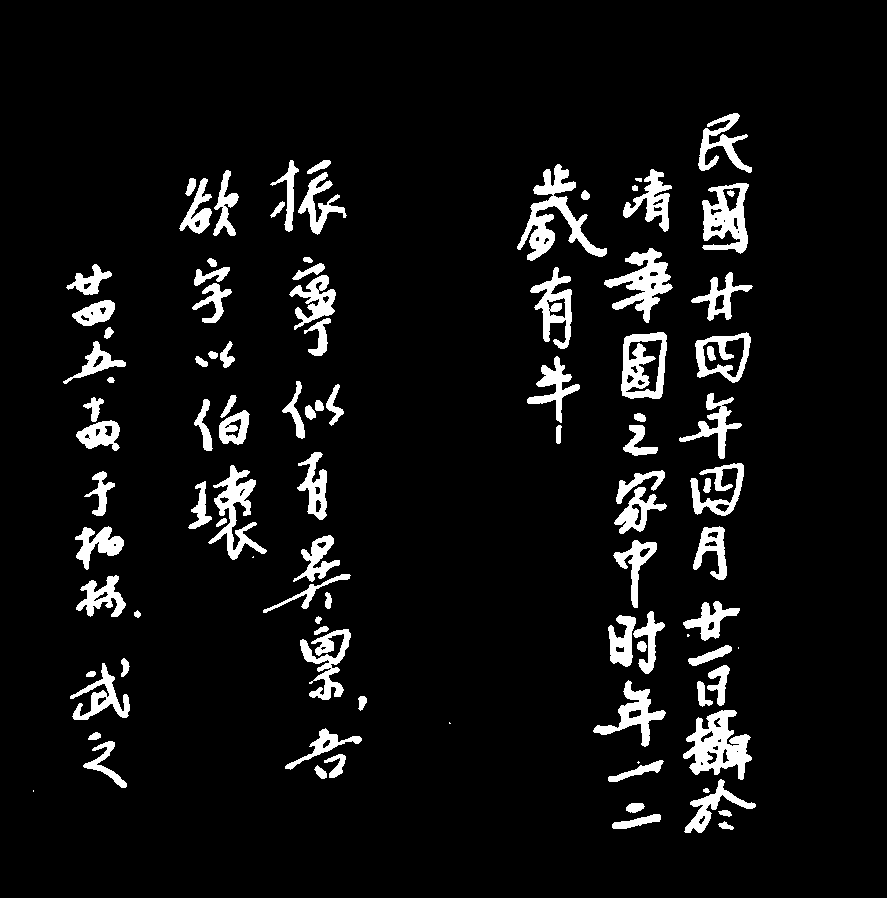 民國廿四年四月廿一日攝於
清華園之家中时年一二
歲有半
振寧似有異禀，吾
欲字以伯瓌
廿四、五、十四、于柏林．武之